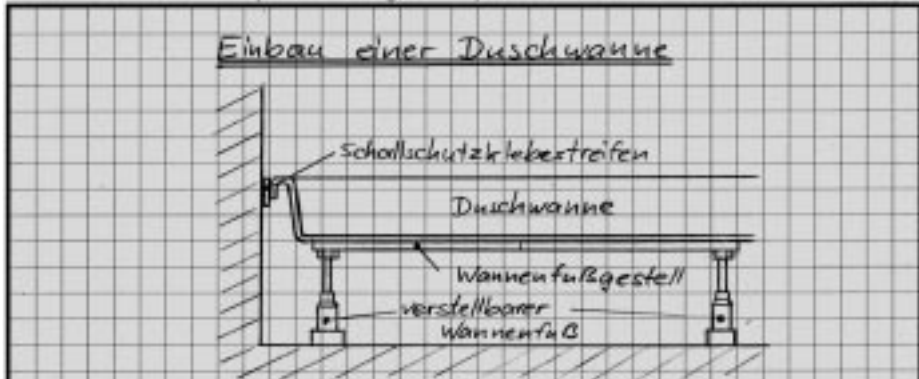 Einbau einer Duschwanne
Schallschutzklebestreifen
Duschwanne
Wannenfußgestell
verstellbarer
Wannenfuß